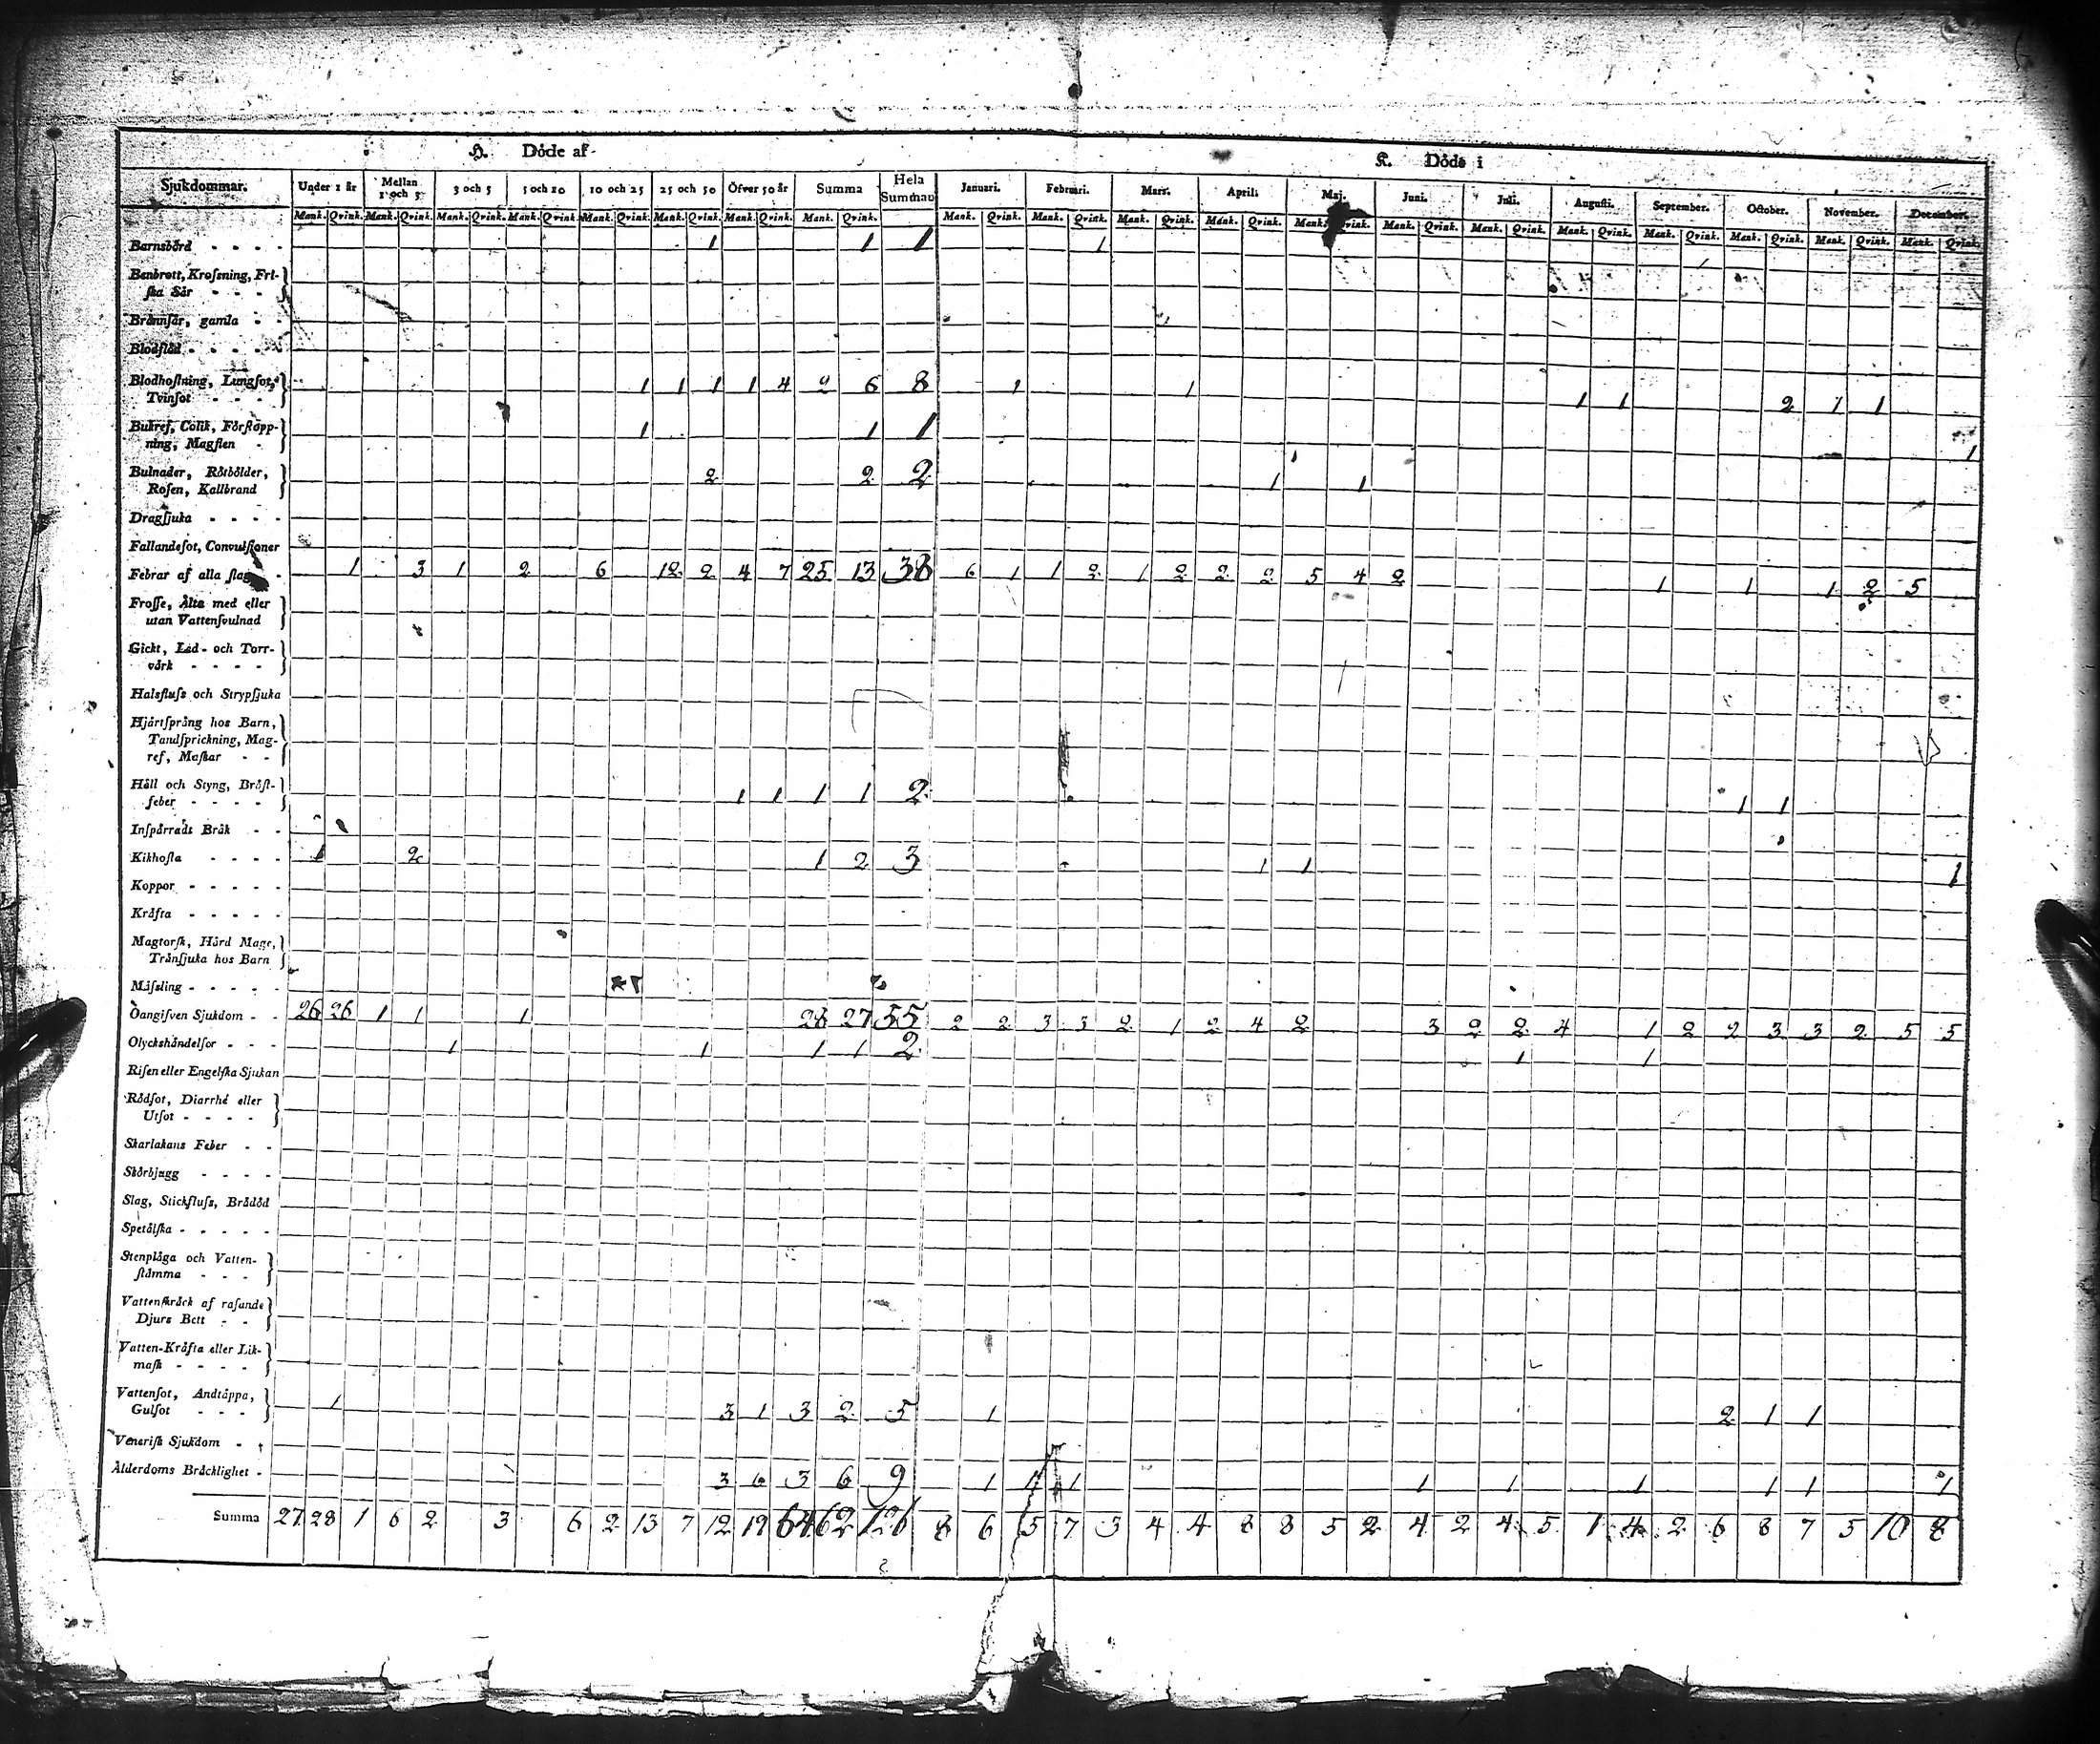 H. Döde af
K. Döde i
Sjukdommar. Under 1 år Mellan 1 och 3 3 och 5 5 och 10 10 och 25 25 och 50 Öfver 50 år Summa Hela Summan Januari. Februari. Mars. April. Maj. Juni. Juli. Augusti. September. October. November. December.
Mank. Qvink. Mank. Qvink. Mank. Qvink. Mank. Qvink. Mank. Qvink. Mank. Qvink. Mank. Qvink. Mank. Qvink. Mank. Qvink. Mank. Qvink. Mank. Qvink. Mank. Qvink. Mank. Qvink. Mank. Qvink. Mank. Qvink. Mank. Qvink. Mank. Qvink. Mank. Qvink. Mank. Qvink. Mank. Qvink.
Barnsbörd - - - - 1 1 1 1
Benbrott, Krosſning, Fri-
ſka Sår - - -
Brännſår, gamla - -
Blodflöd - - - - -
Blodhoſtning, Lungſot,
Tvinſot - - - 1 1 1 1 4 2 6 8 1 1 1 1 2 1 1
Bukref, Colik, Förſtopp-
ning, Magſten - 1 1 1 1
Bulnader, Rötbölder,
Roſen, Kallbrand 2 2 2 1 1
Dragſjuka - - - -
Fallandeſot, Convulſioner
Febrar af alla ſlag - 1 3 1 2 6 12 2 4 7 25 13 38 6 1 1 2 1 2 2 2 5 4 2 1 1 1 2 5
Froſſe, Älta med eller
utan Vattenſvulnad
Gickt, Led- och Torr-
värk - - - -
Halsfluſs och Strypſjuka
Hjärtſprång hos Barn,
Tandſprickning, Mag-
ref, Maſkar - -
Håll och Styng, Bröſt-
feber - - - - 1 1 1 1 2 1 1
Inſpärradt Bråk - -
Kikhoſta - - - - 1 2 1 2 3 1 1 1
Koppor - - - - -
Kräfta - - - - -
Magtorſk, Hård Mage,
Tränſjuka hos Barn
Mäſsling - - - - -
Oangifven Sjukdom - - 26 26 1 1 1 28 27 55 2 2 3 3 2 1 2 4 2 3 2 2 4 1 2 2 3 3 2 5 5
Olyckshändelſor - - - 1 1 1 1 2 1 1
Riſen eller Engelſka Sjukan
Rödſot, Diarrhé eller
Utſot - - - -
Skarlakans Feber - -
Skörbjugg - - - -
Slag, Stickfluſs, Brådöd
Spetälſka - - - - -
Stenplåga och Vatten-
ſtämma - - -
Vattenſkräck af raſande
Djurs Bett - -
Vatten-Kräfta eller Lik-
maſk - - - -
Vattenſot, Andtäppa,
Gulſot - - - 1 3 1 3 2 5 1 2 1 1
Veneriſk Sjukdom - -
Ålderdoms Bräcklighet - 3 6 3 6 9 1 1 1 1 1 1 1 1 1
Summa 27 28 1 6 2 3 6 2 13 7 12 19 64 62 126 8 6 5 7 3 4 4 8 8 5 2 4 2 4 5 1 4 2 6 8 7 5 10 8